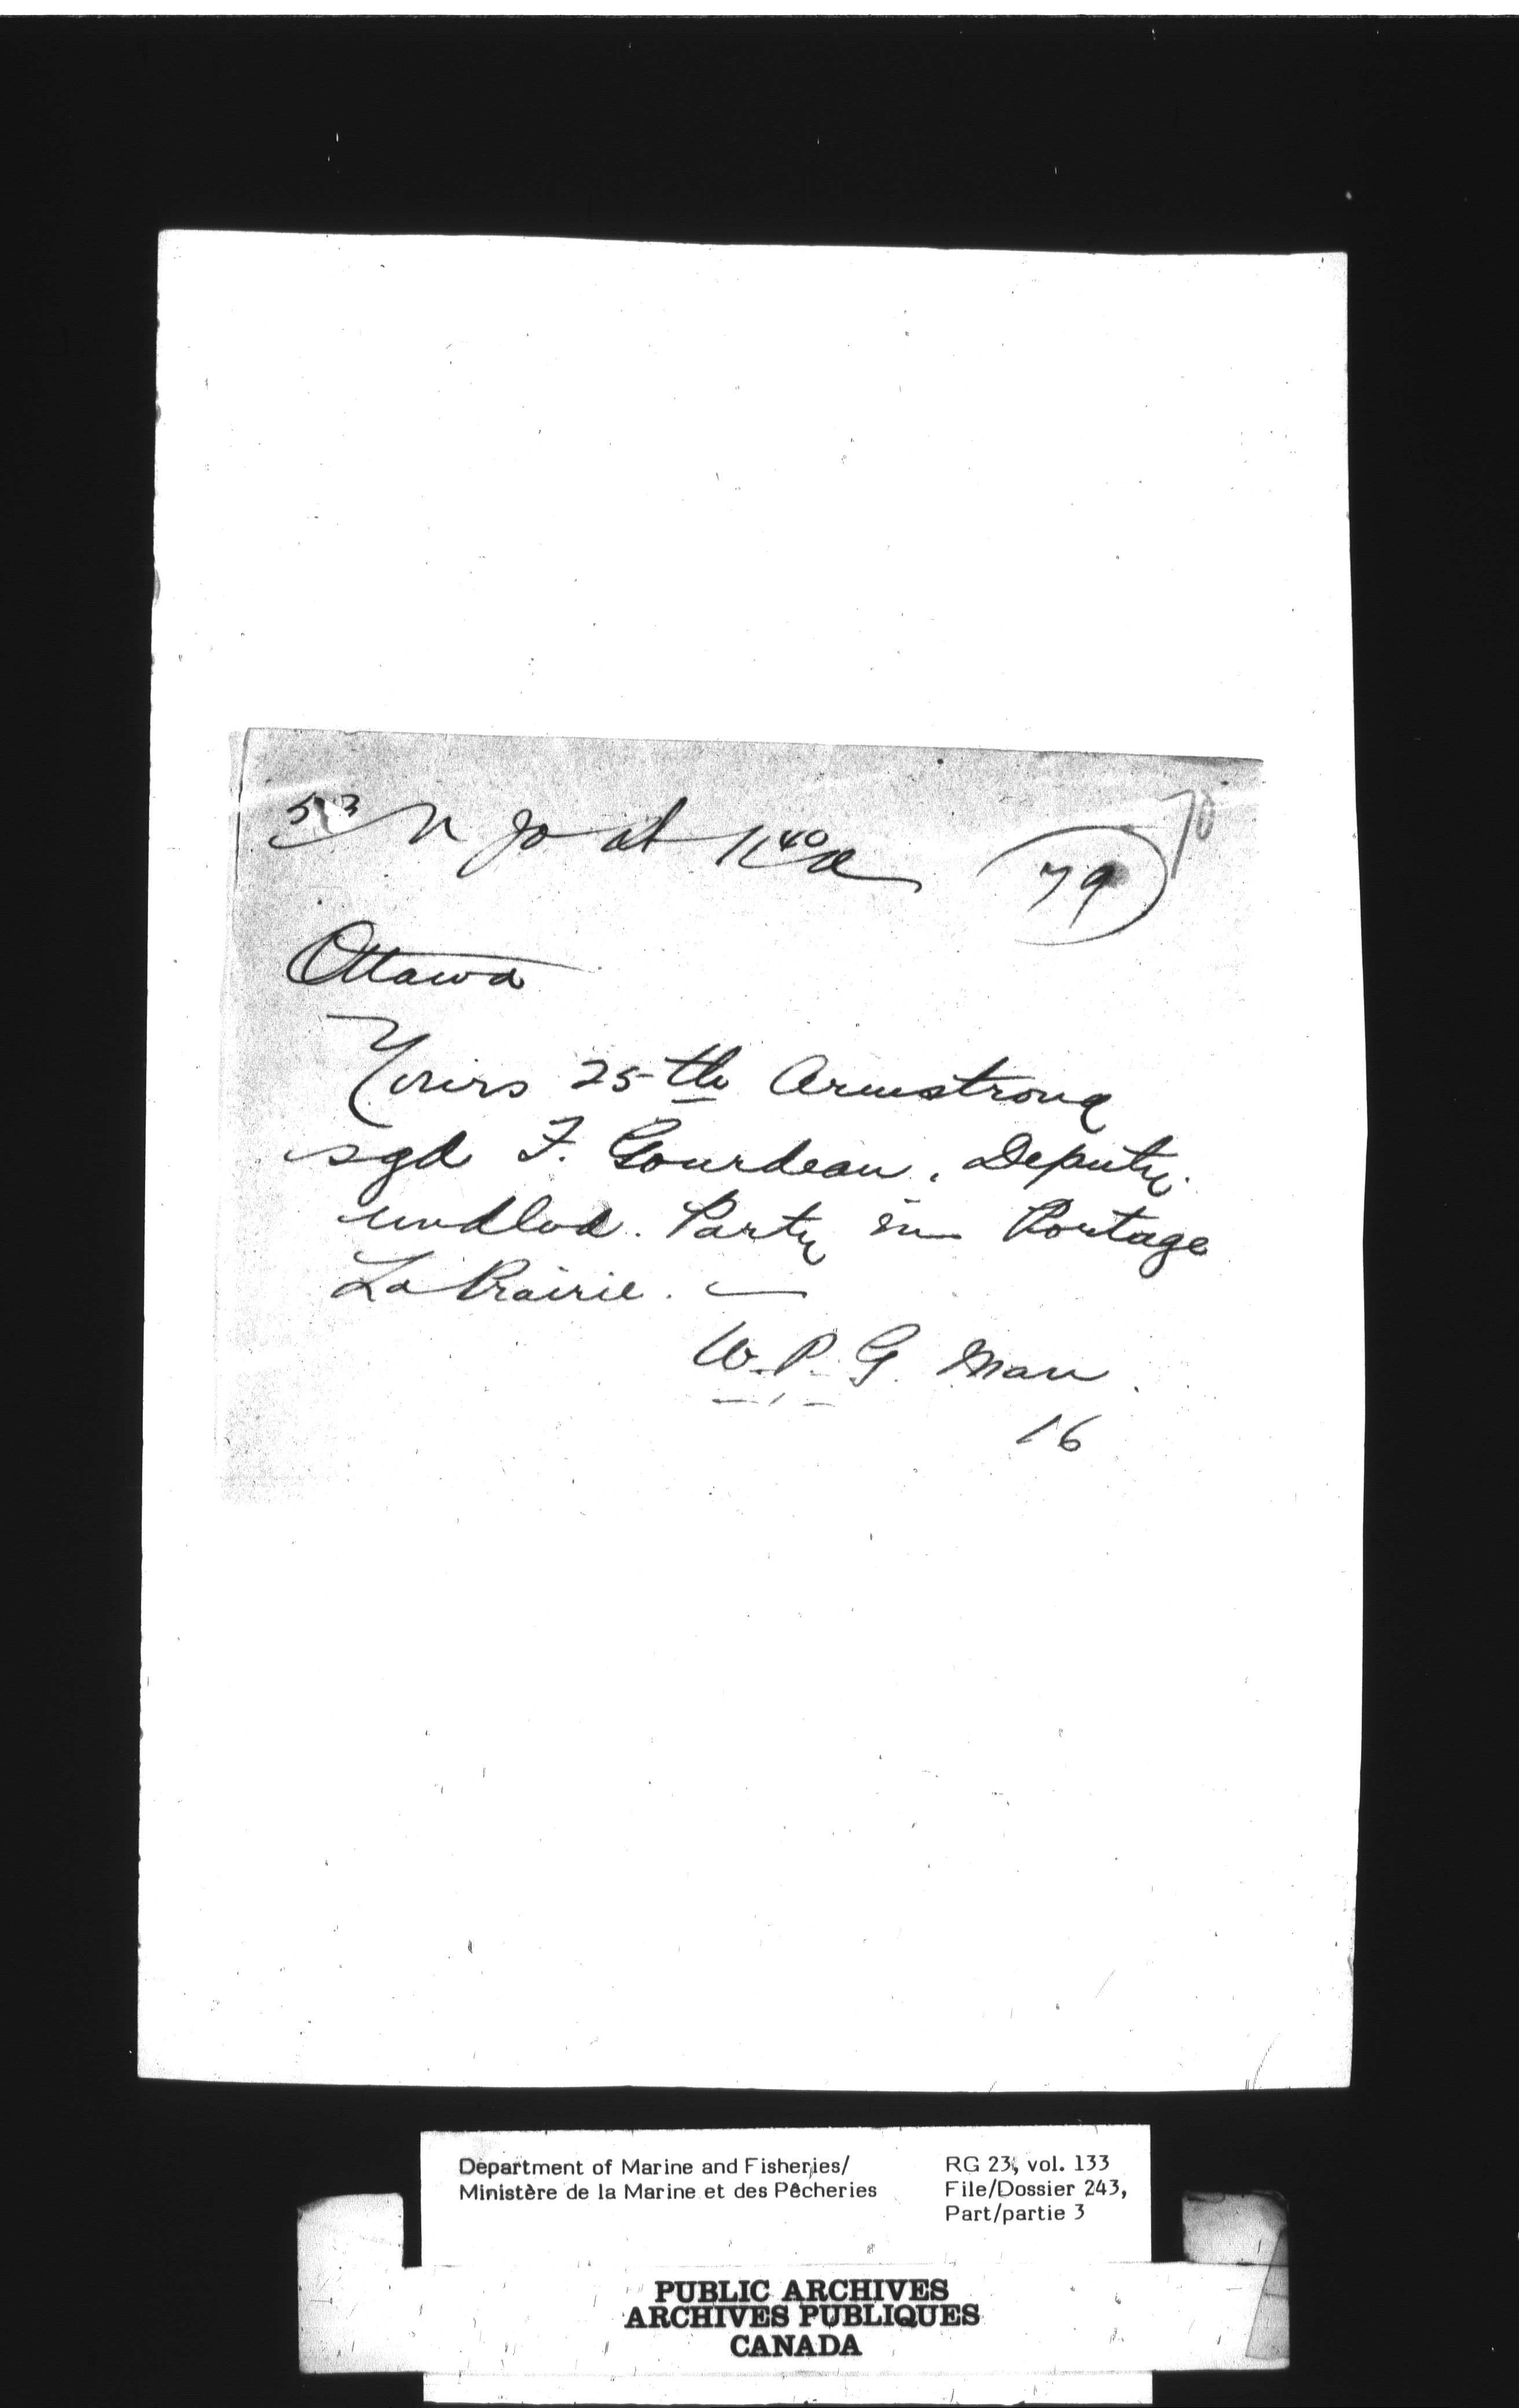 53 N Jo at 1140a
79
70
Ottawa
Yours 25th Armstrong
sgd F. Gourdeau. Deputy.
undlvd. Party in Portage
La Prairie. —
W.P.G. Man.
16
Department of Marine and Fisheries/
Ministère de la Marine et des Pêcheries
RG 23, vol. 133
File/Dossier 243,
Part/partie 3
PUBLIC ARCHIVES
ARCHIVES PUBLIQUES
CANADA